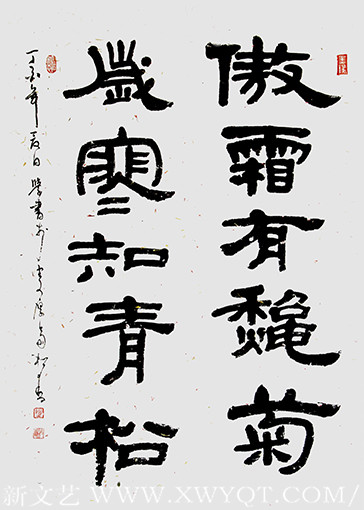 傲霜有龝菊
歲寒知青松
丁酉年夏日
新文艺 WWW.XWYQT.COM